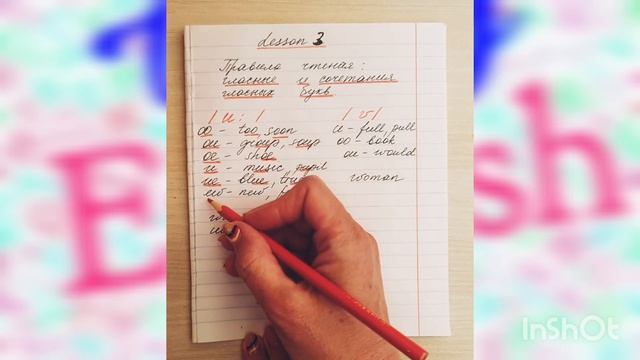 Lesson 3
Правила чтения:
гласные и сочетания
гласных букв
/ u: /
/ ʊ /
oo - too, soon
ou - group, soup
oe - shoe
u - music, pupil
ue - blue,
ew - new,
u - full, pull
oo - book
ou - would
woman
InShOt